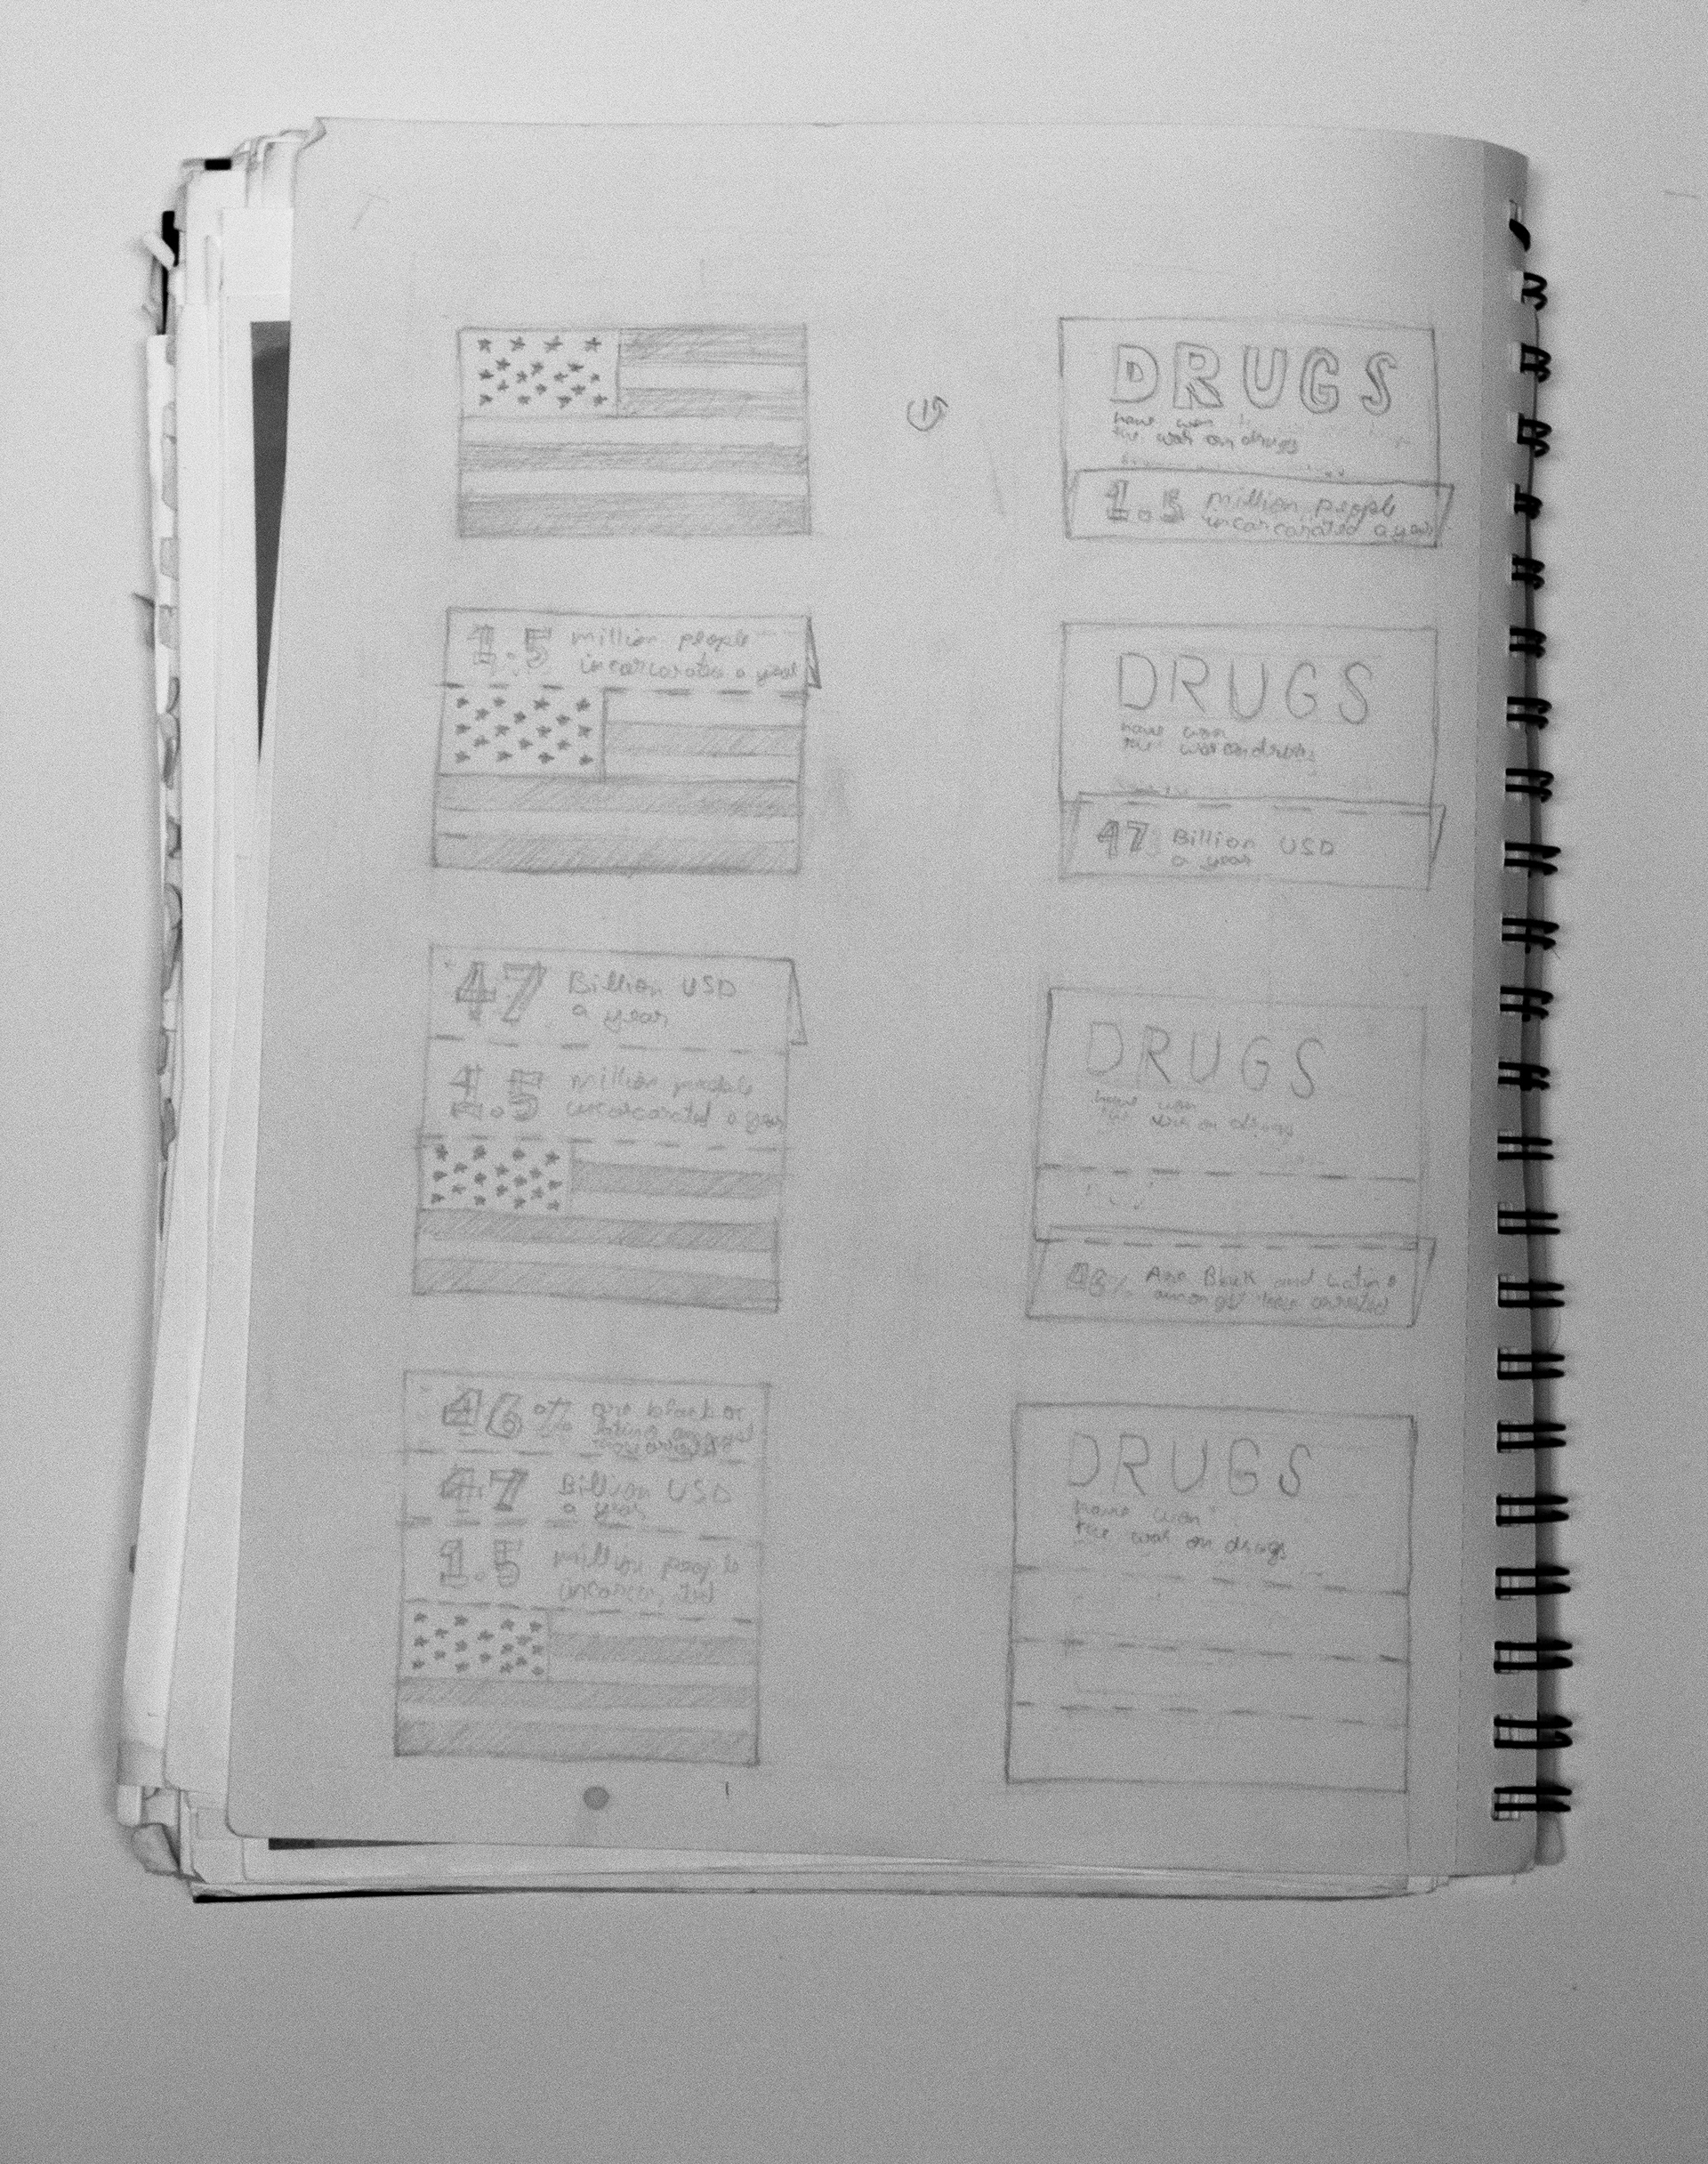 DRUGS
have won
the war on drugs
1.5 million people
incarcarated a year
1.5 million people
incarcarated a year
DRUGS
have won
the war on drugs
47 Billion USD
a year
47 Billion USD
a year
1.5 million people
incarcarated a year
DRUGS
have won
the war on drugs
46% Are Black and Latino
amongst
46% are black or
latino
47 Billion USD
a year
1.5 million people
DRUGS
have won
the war on drugs